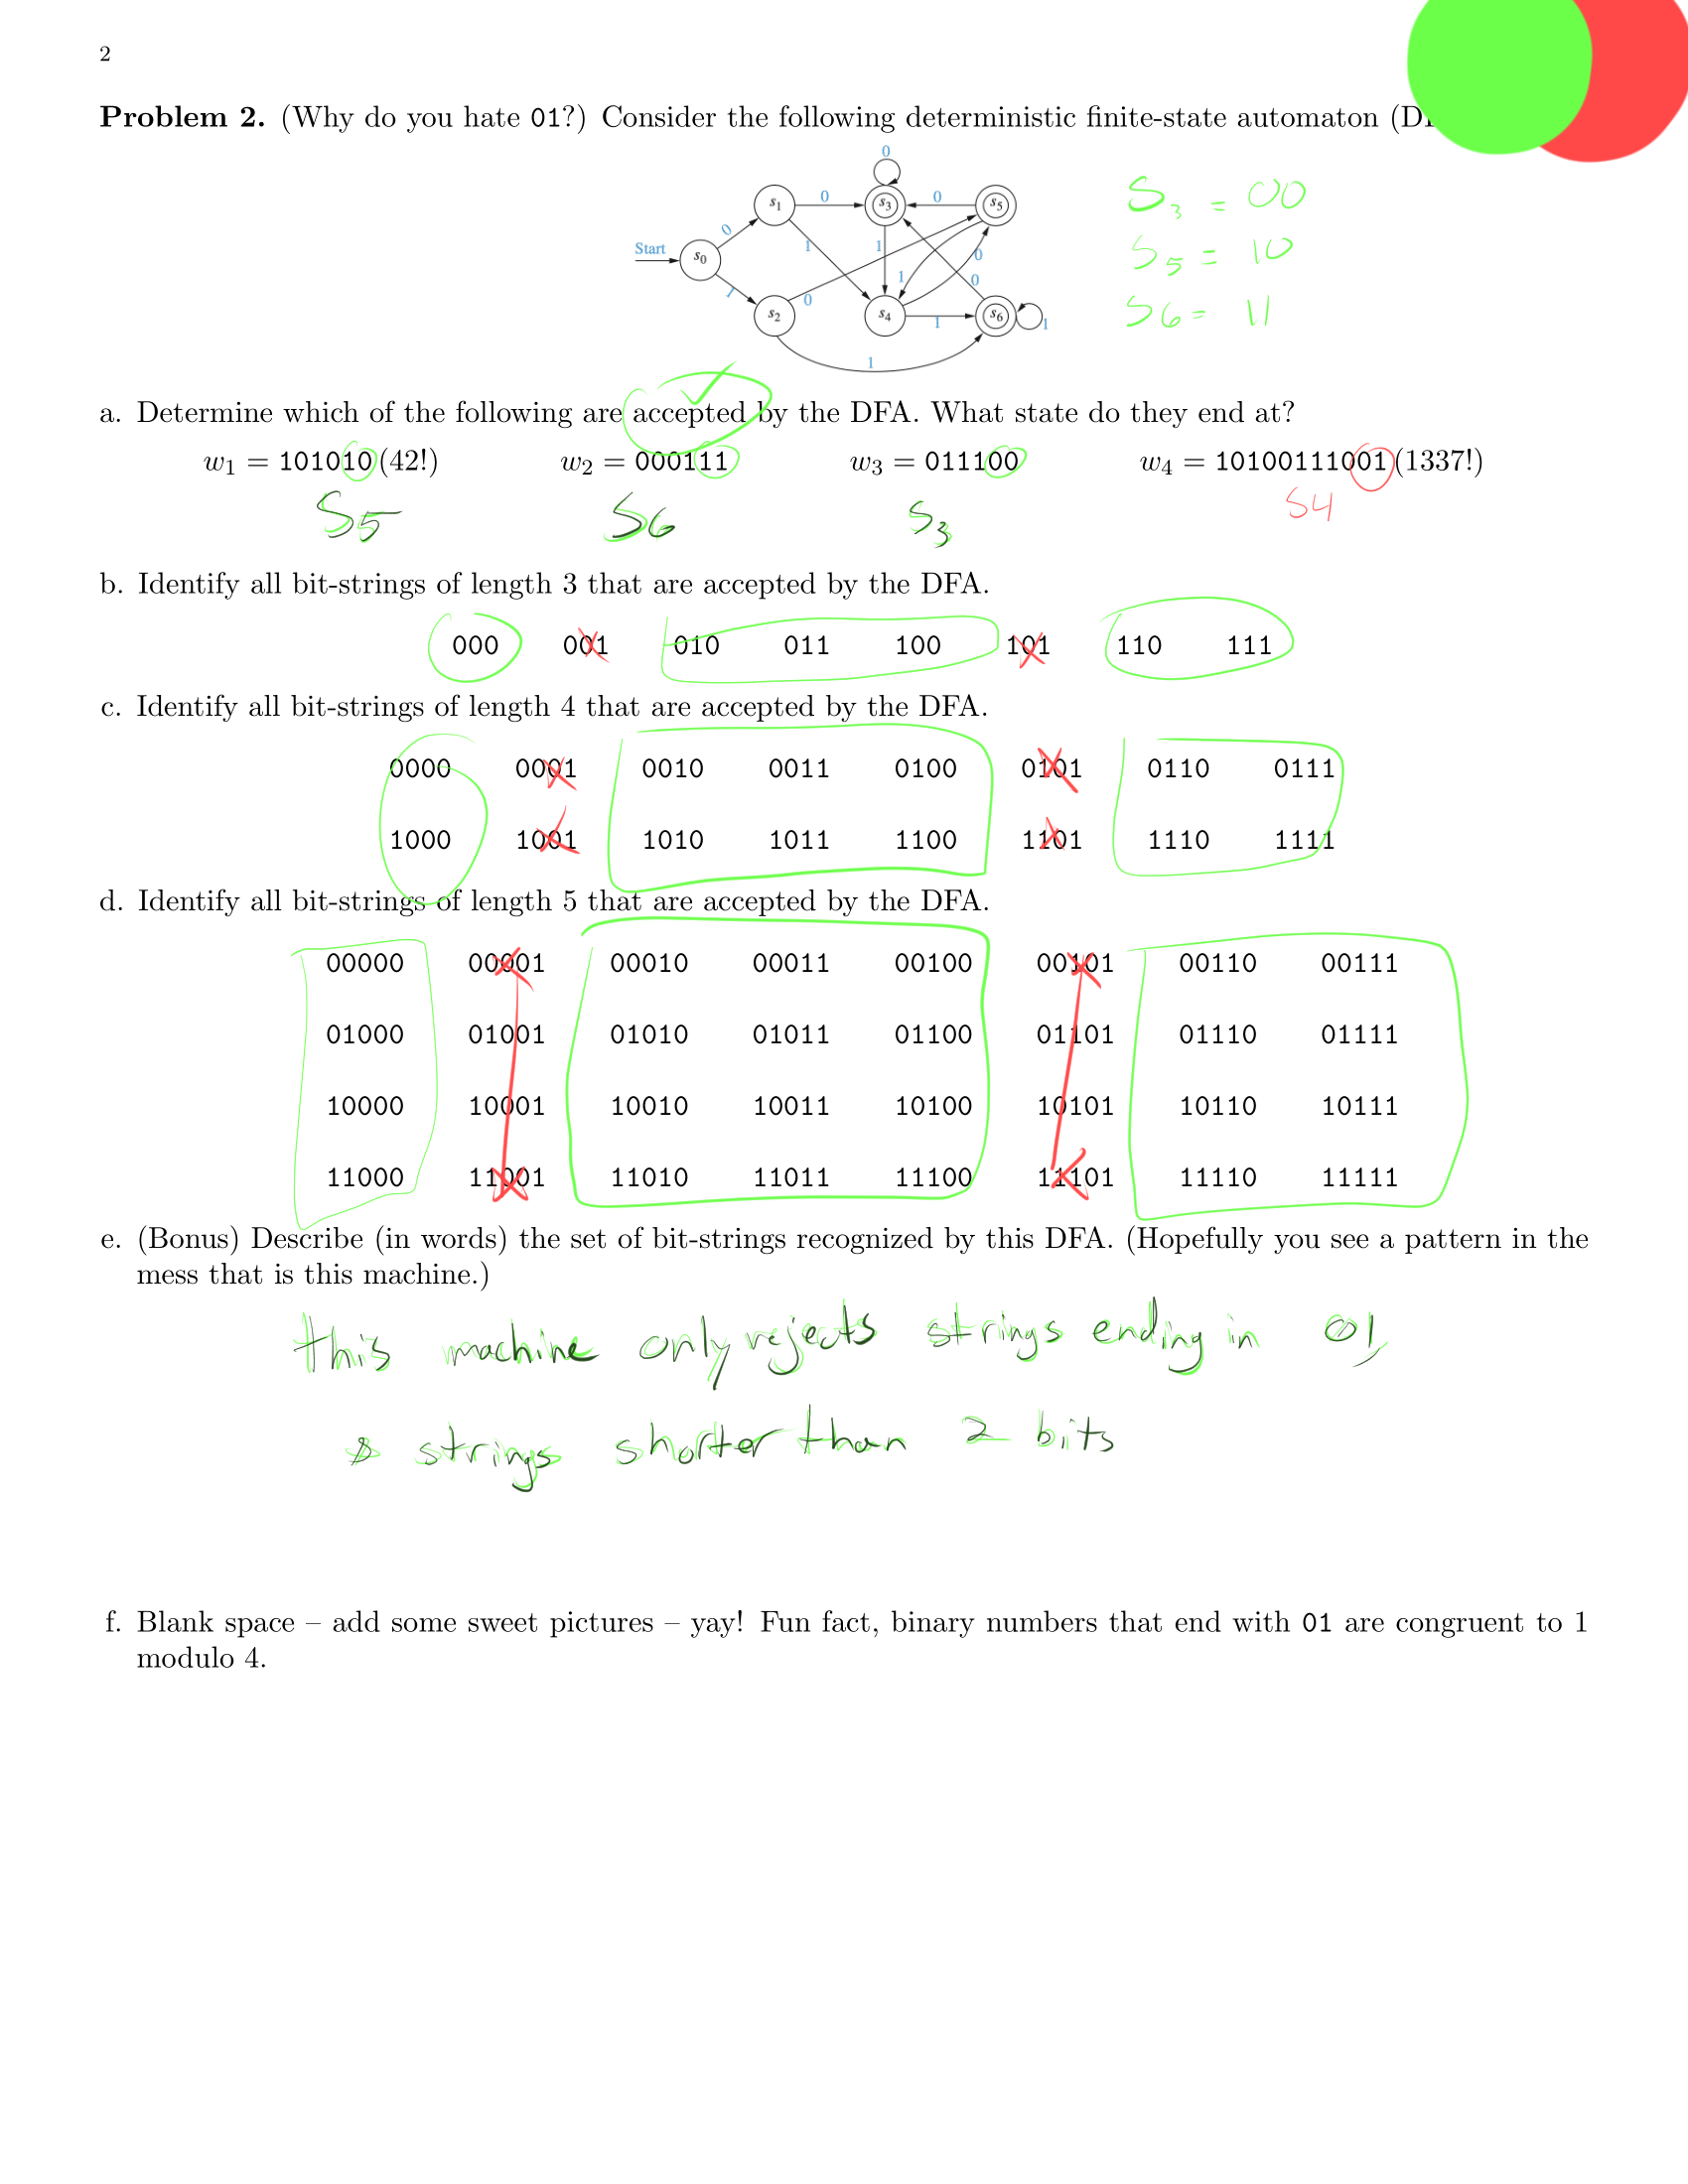 2
Problem 2. (Why do you hate 01?) Consider the following deterministic finite-state automaton
0
s1 0 s3 0 s5
0 1 1 0
Start s0
1 0 1 0
s2 s4 1 s6 1
1
S3 = 00
S5 = 10
S6 = 11
a. Determine which of the following are accepted by the DFA. What state do they end at?
w1 = 101010 (42!) w2 = 000111 w3 = 011100 w4 = 10100111001 (1337!)
S5 S6 S3 S4
b. Identify all bit-strings of length 3 that are accepted by the DFA.
000 001 010 011 100 101 110 111
c. Identify all bit-strings of length 4 that are accepted by the DFA.
0000 0001 0010 0011 0100 0101 0110 0111
1000 1001 1010 1011 1100 1101 1110 1111
d. Identify all bit-strings of length 5 that are accepted by the DFA.
00000 00001 00010 00011 00100 00101 00110 00111
01000 01001 01010 01011 01100 01101 01110 01111
10000 10001 10010 10011 10100 10101 10110 10111
11000 11001 11010 11011 11100 11101 11110 11111
e. (Bonus) Describe (in words) the set of bit-strings recognized by this DFA. (Hopefully you see a pattern in the
mess that is this machine.)
this machine only rejects strings ending in 01,
& strings shorter than 2 bits
f. Blank space – add some sweet pictures – yay! Fun fact, binary numbers that end with 01 are congruent to 1
modulo 4.